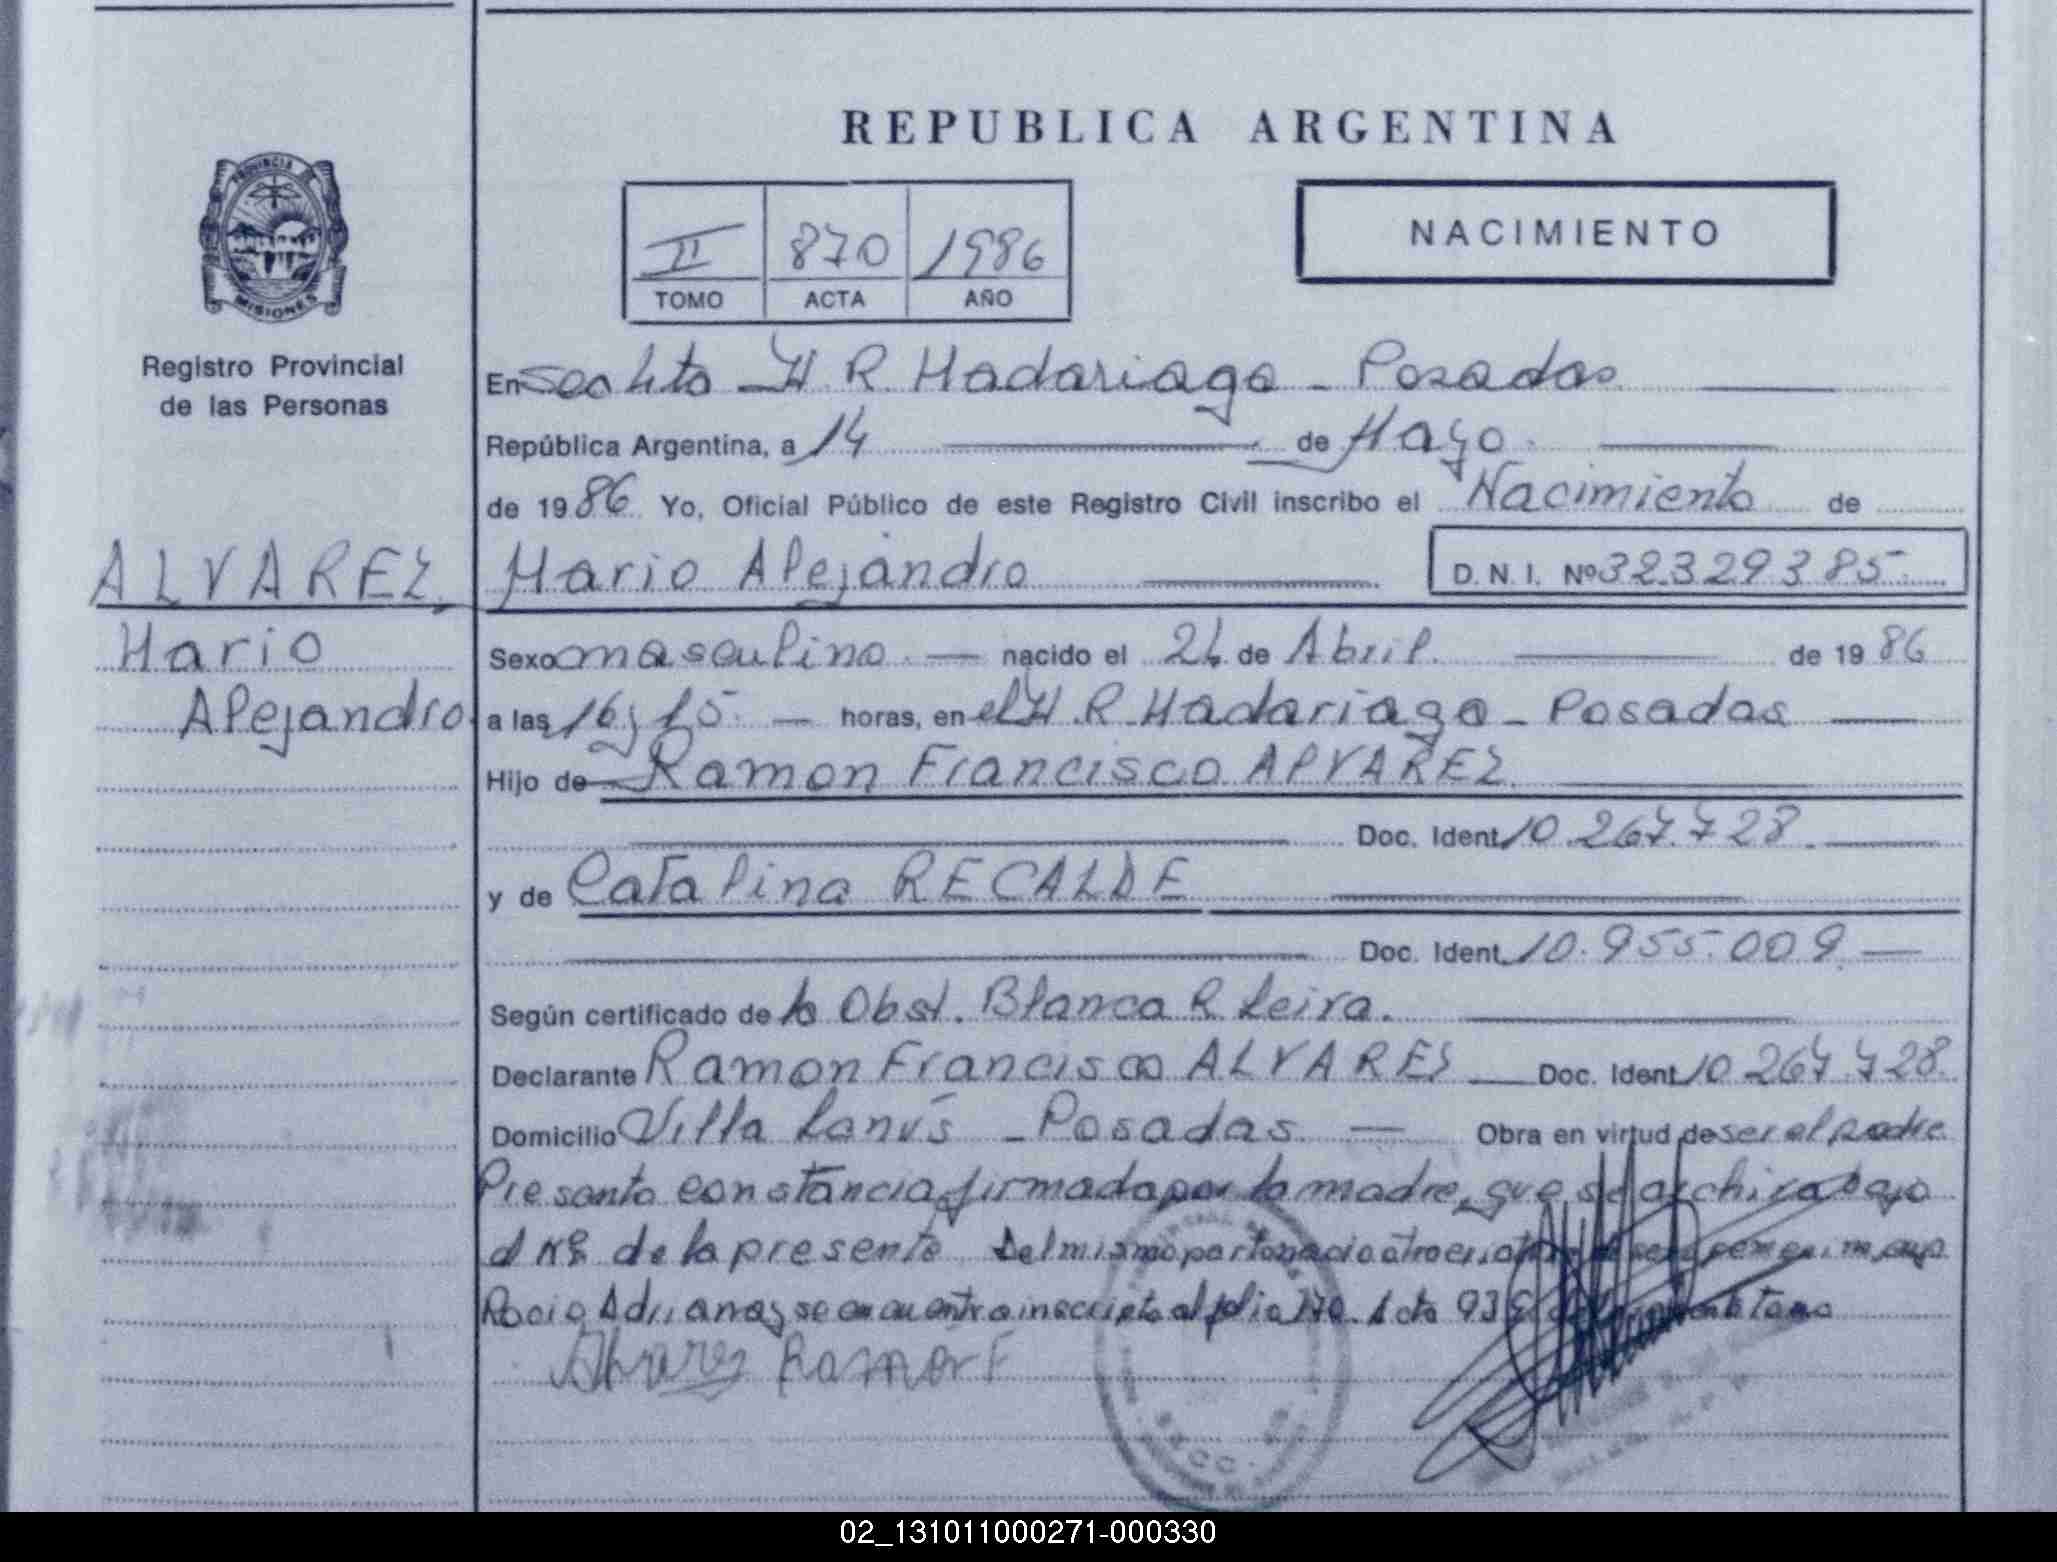 REPUBLICA ARGENTINA
PROVINCIA DE
MISIONES
II 870 1986
TOMO ACTA AÑO
NACIMIENTO
Registro Provincial
de las Personas
En H. R. Madariaga - Posadas
República Argentina, a 14 de Mayo
de 1986 Yo, Oficial Público de este Registro Civil inscribo el Nacimiento de
ALVAREZ
Mario Alejandro D. N. I. Nº 32.329.385
Mario
Alejandro
Sexo masculino nacido el de Abril de 1986
a las 16 y 15 horas, en el H. R. Madariaga - Posadas
Hijo de Ramon Francisco ALVAREZ
Doc. Ident. 10.267.728
y de Catalina RECALDE
Doc. Ident. 10.955.009
Según certificado de la Obst. Blanca R Leira.
Declarante Ramon Francisco ALVAREZ Doc. Ident. 10.267.728
Domicilio Villa Lanús - Posadas Obra en virtud de ser el padre
Presenta constancia firmada por la madre, que se archiva bajo
el Nº de la presente Del mismo parto nacio otro
Rocio Adriana y se encuentra inscripta al folio 170. Acta
Alvarez Ramón F
02_131011000271-000330